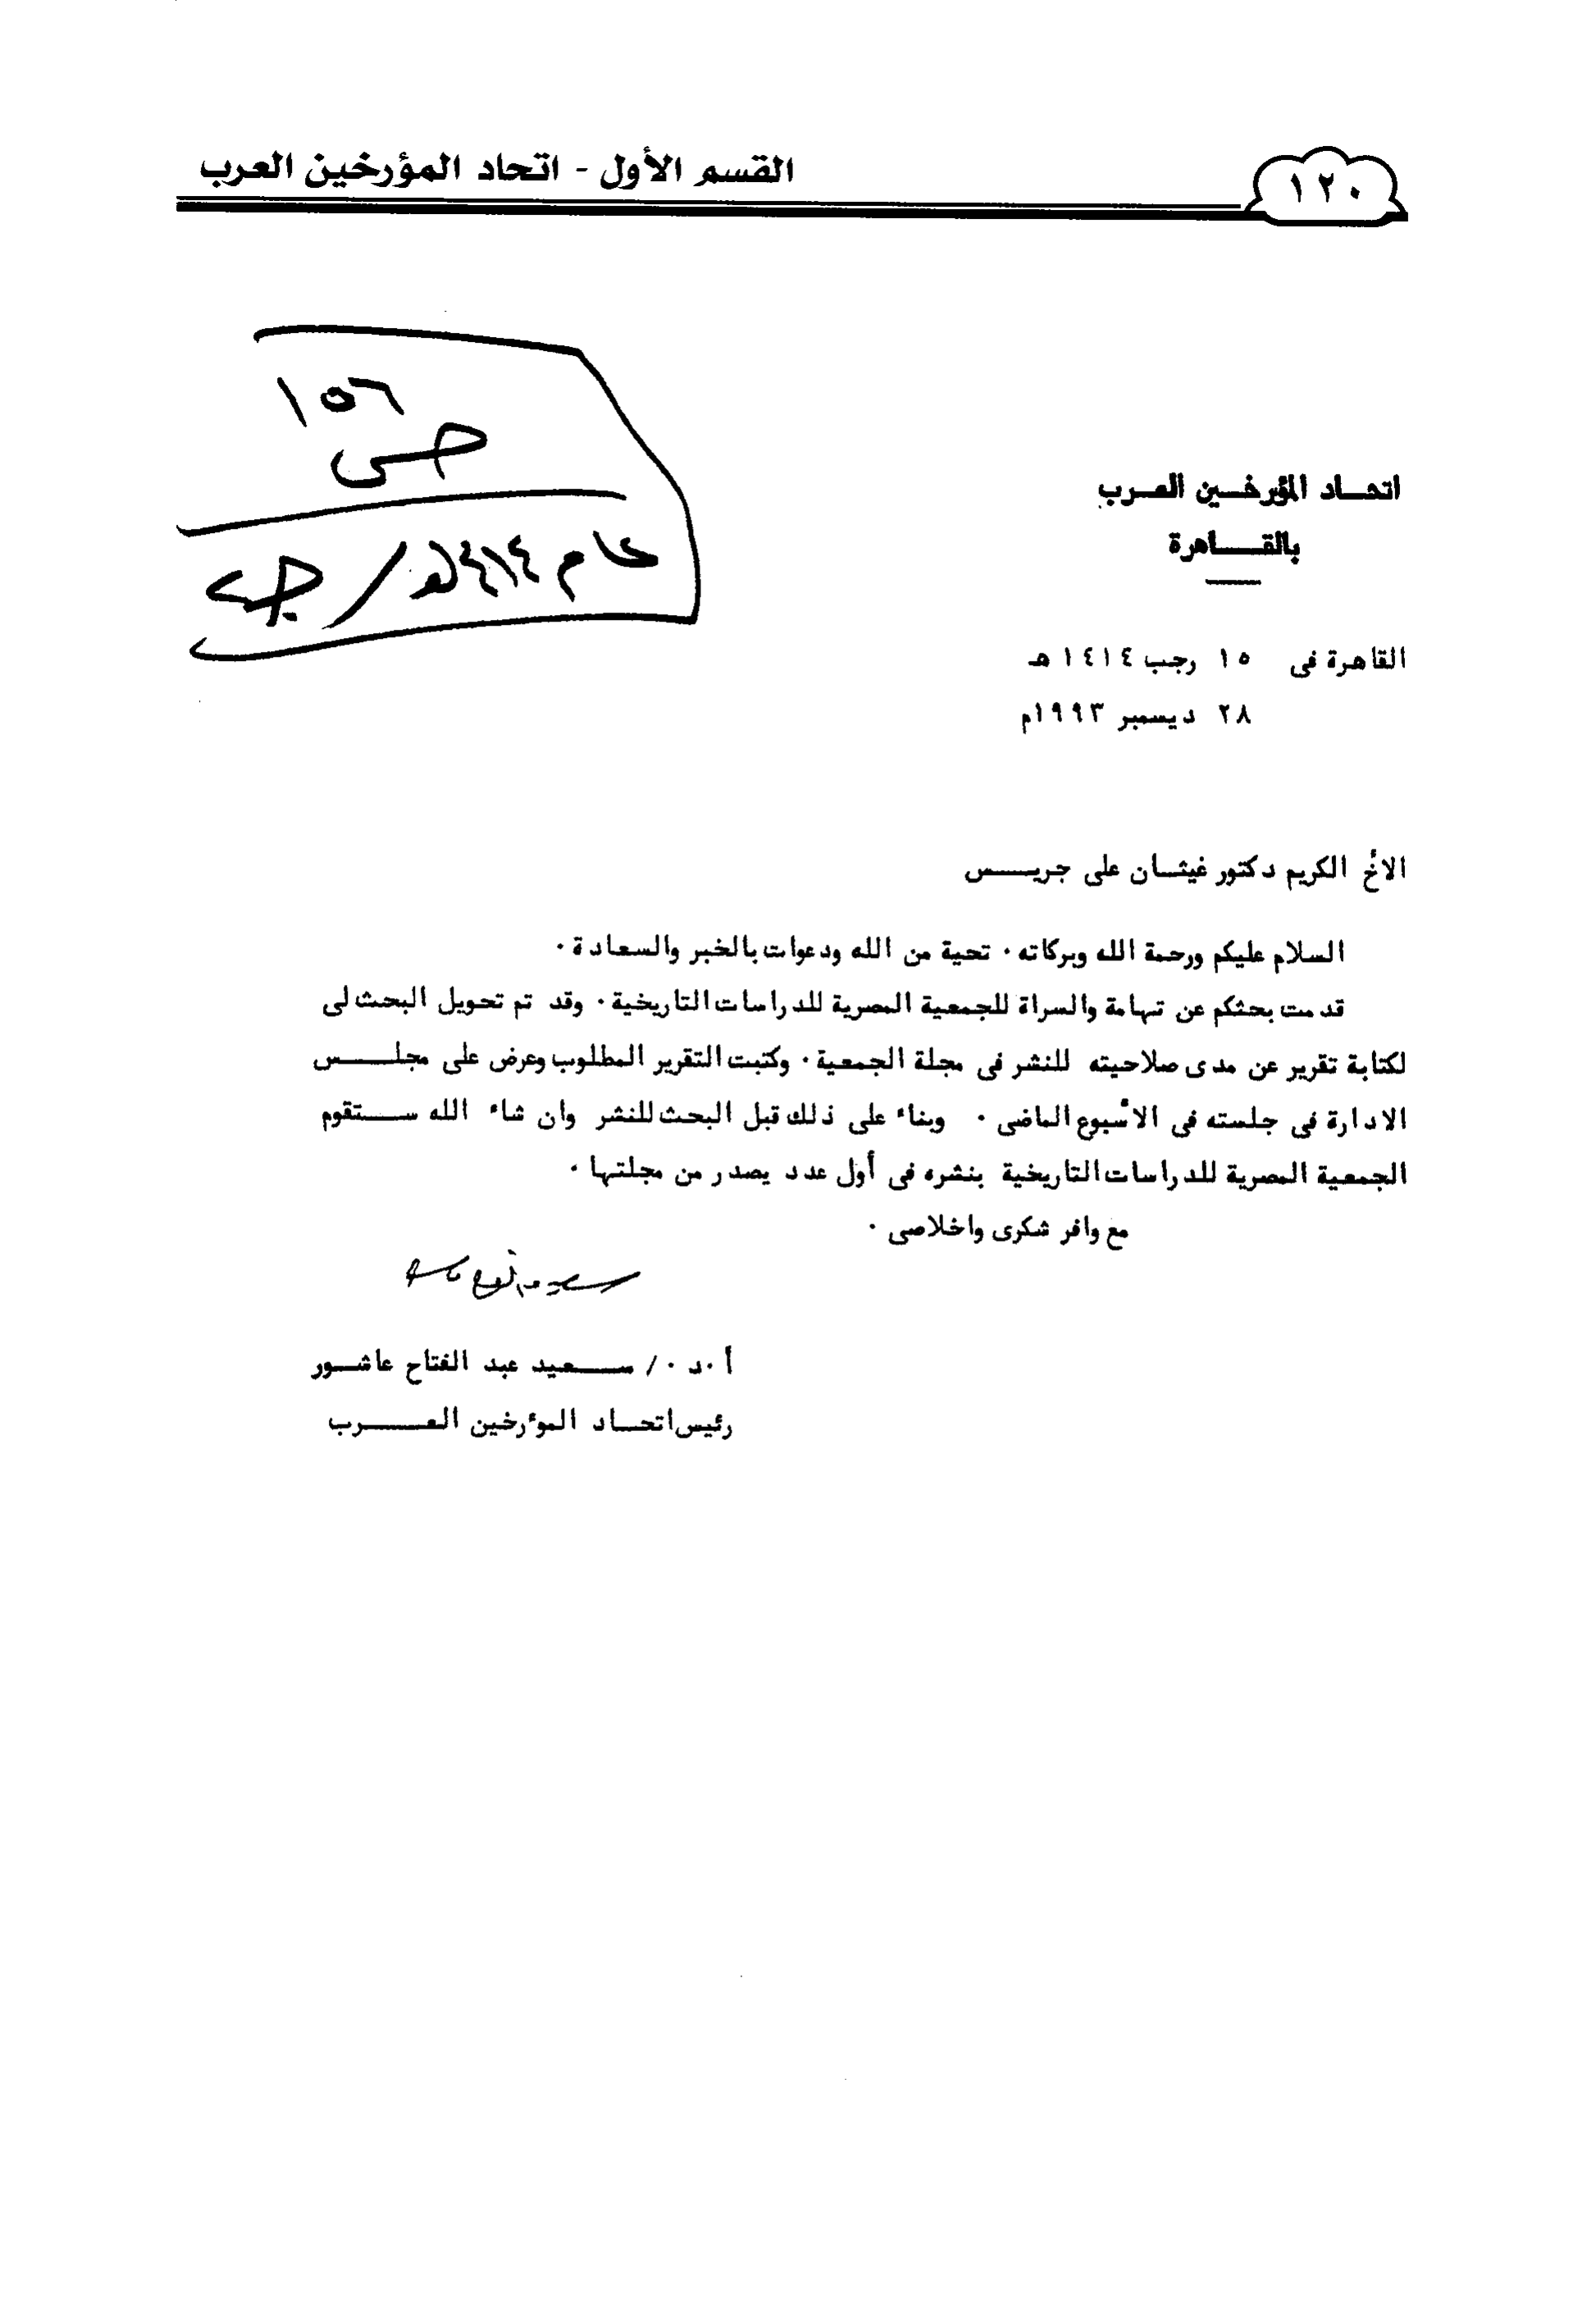 ١٢٠
القسم الأول - اتحاد المؤرخين العرب
١٥٦
ص
عام ١٤١٤هـ / جـ
اتحـاد المؤرخـين العـرب
بالقـــاهرة
القاهرة فى ١٥ رجب ١٤١٤ هـ
٢٨ ديسمبر ١٩٩٣م
الأخ الكريم دكتور غيثـان على جريـــس
السلام عليكم ورحمة الله وبركاته ٠ تحية من الله ودعوات بالخبر والسعادة ٠
قدمت بحثكم عن تهامة والسراة للجمعية المصرية للدراسات التاريخية ٠ وقد تم تحويل البحث لى
لكتابة تقرير عن مدى صلاحيته للنشر فى مجلة الجمعية ٠ وكتبت التقرير المطلوب وعرض على مجلــس
الادارة فى جلسته فى الأسبوع الماضى ٠ وبناء على ذلك قبل البحث للنشر وان شاء الله ســتقوم
الجمعية المصرية للدراسات التاريخية بنشره فى أول عدد يصدر من مجلتها ٠
مع وافر شكرى واخلاصى ٠
أ ٠د ٠/ ســعيد عبد الفتاح عاشــور
رئيس اتحــاد المؤرخين العــــرب